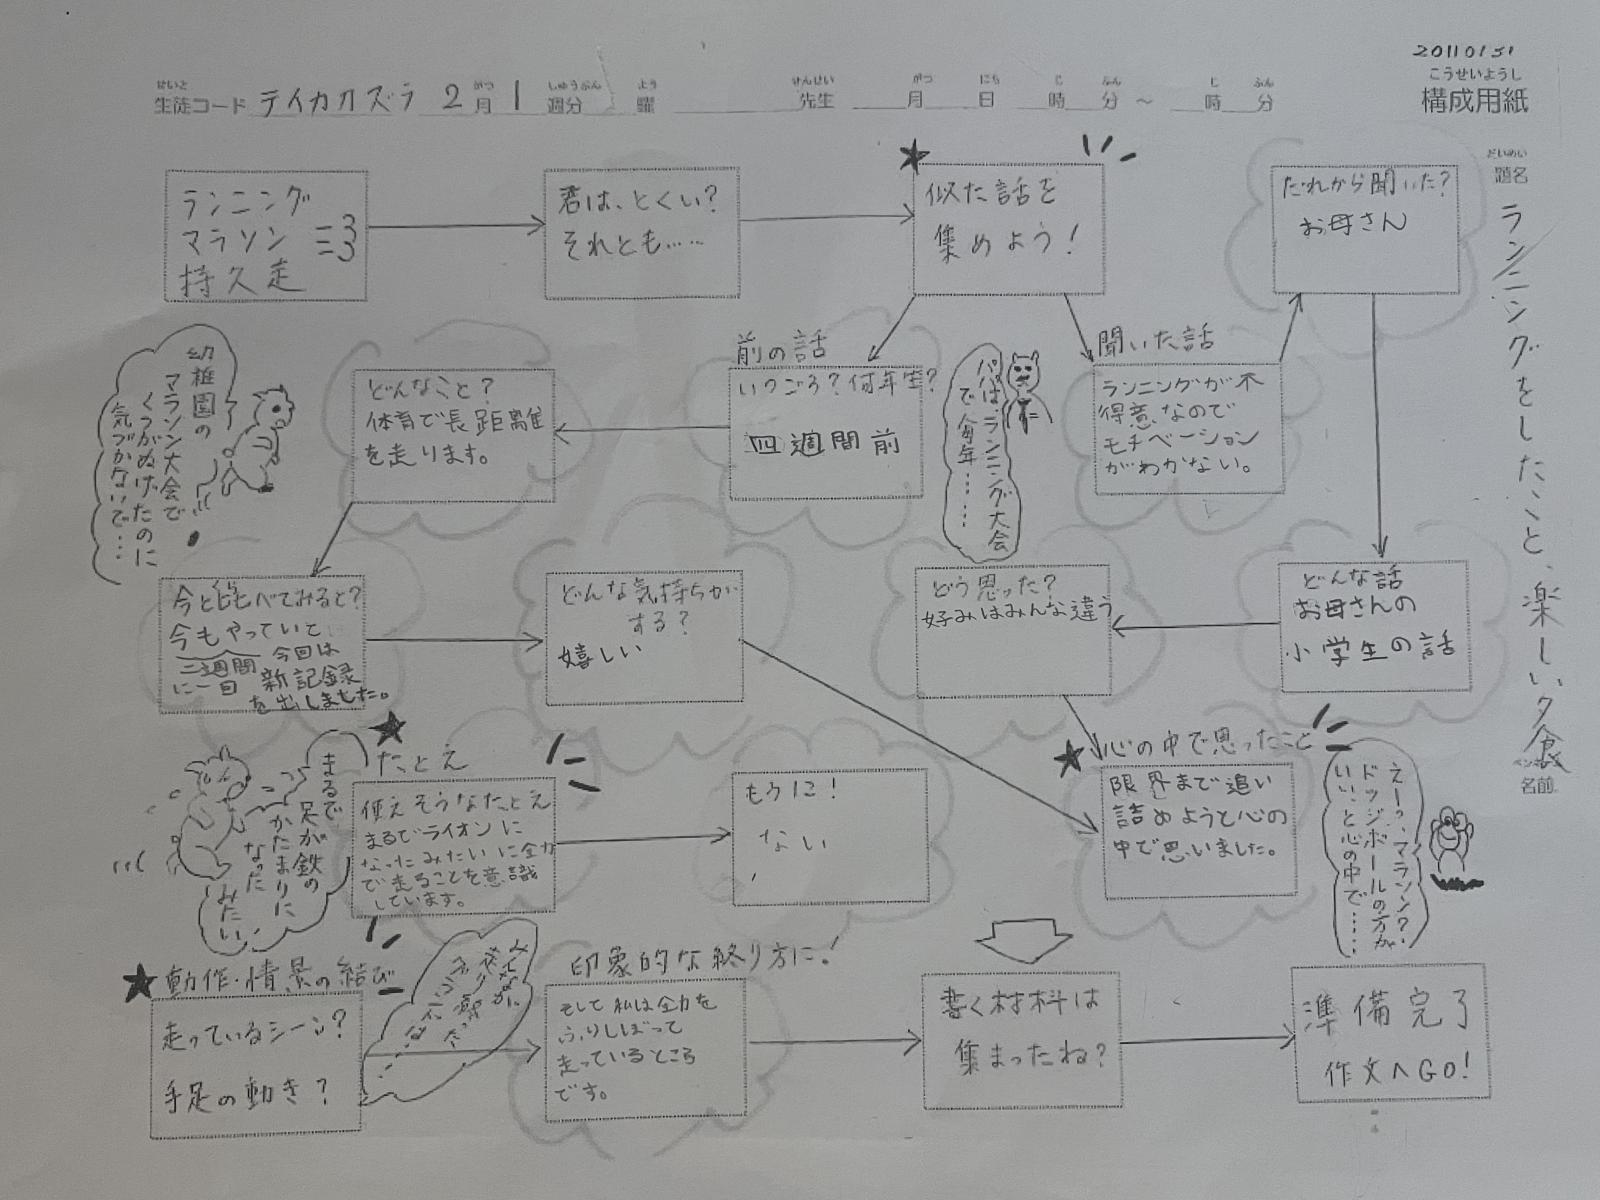 20110131
こうせいようし
構成用紙
せいと がつ しゅうぶん よう せんせい がつ にち じ ふん じ ふん
生徒コード テイカカズラ 2月 1週分 曜 先生 月 日 時 分 ～ 時 分
だいめい
題名
ランニングをしたこと、楽しい夕食
名前
ランニング
マラソン
持久走
君は、とくい？
それとも……
★
似た話を
集めよう！
だれから聞いた？
お母さん
前の話
いつごろ？何年生？
四週間前
聞いた話
ランニングが不
得意なので
モチベーション
がわかない。
パパは、ランニング大会
で毎年……
どんなこと？
体育で長距離
を走ります。
幼稚園の
マラソン大会で
くつがぬげたのに
気づかないで…
今と比べてみると？
今もやっていと
二週間
に一回
今回は
新記録
を出しました。
どんな気持ちが
する？
嬉しい
どう思った？
好みはみんな違う
どんな話
お母さんの
小学生の話
★心の中で思ったこと
限界まで追い
詰めようと心の
中で思いました。
えーっ、マラソン？
ドッジボールの方が
いい、と心の中で……
★たとえ
使えそうなたとえ
まるでライオンに
なったみたいに全力
で走ることを意識
しています。
まるで
足が鉄の
かたまりに
なった
みたい
もう1こ！
ない
★動作・情景の結び
走っているシーン？
手足の動き？
印象的な終り方に！
そして私は全力を
ふりしぼって
走っているところ
です。
書く材料は
集まったね？
準備完了
作文へGO！